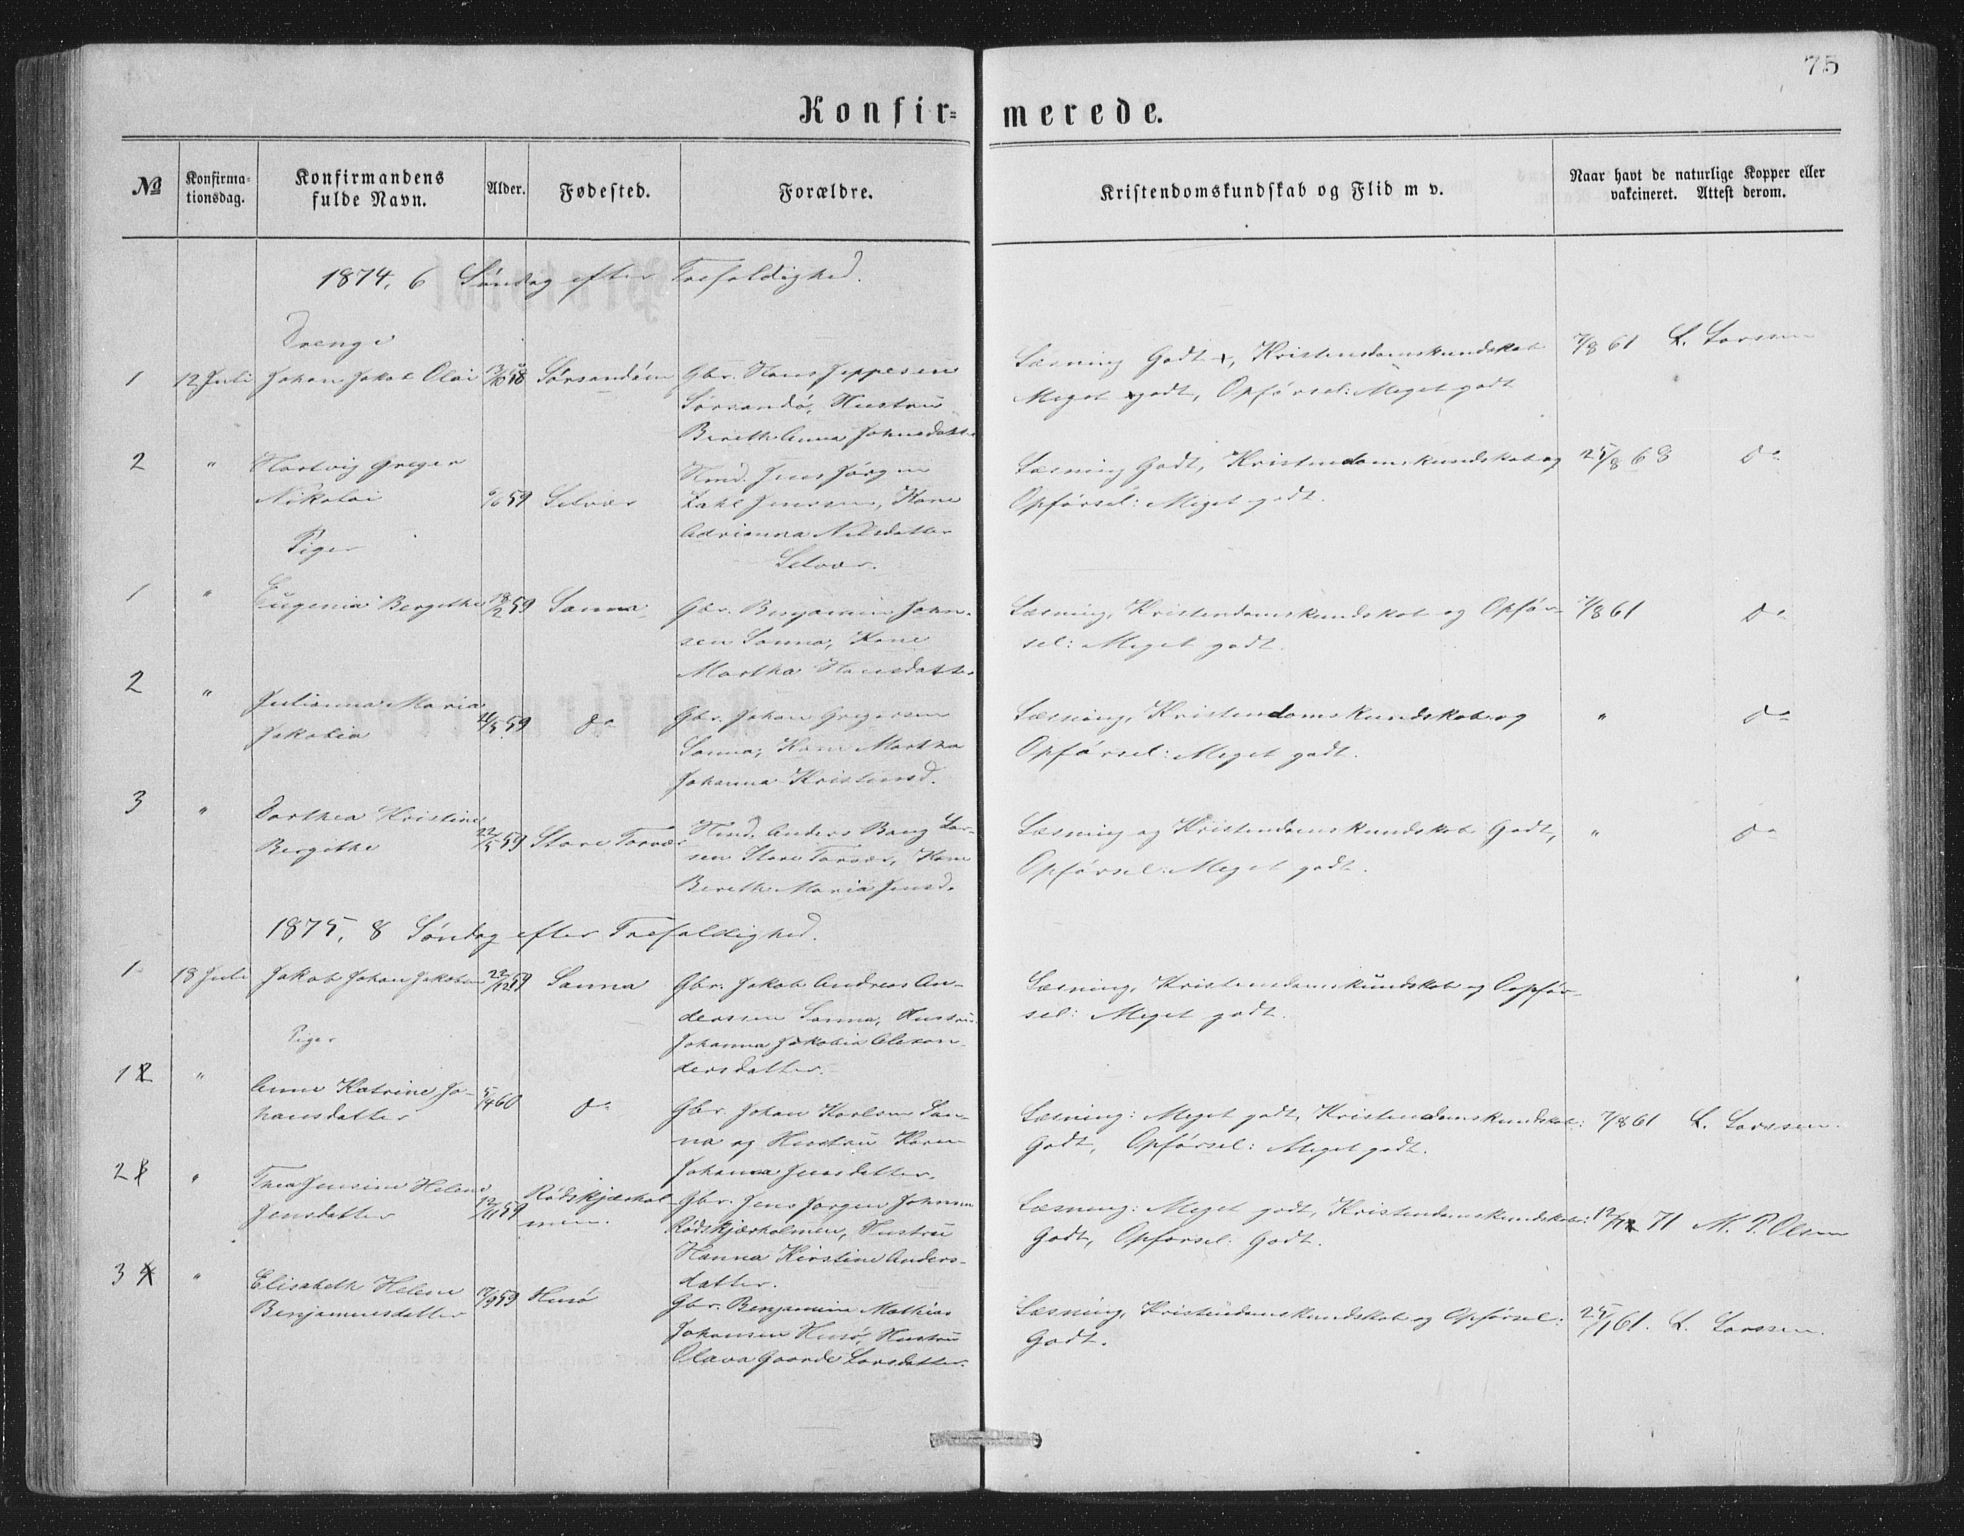 75
Konfir= merede.
№ Konfirma=tionsdag. Konfirmandens fulde Navn. Alder. Fødested. Forældre. Kristendomskundskab og Flid m v. Naar havt de naturlige Kopper eller vakcineret. Attest derom.
1874, 6 Søndag efter Trefoldighed.
Drenge
1 12 Juli Johan Jakob Olai Sørsandøen Gbr. Hans Jeppesen Læsning Godt, Kristendomskundskab 7/8 61 L. Larssen
Sørsandø, Hustru Meget godt, Opførsel: Meget godt
Bereth Anna Johnsdatter
2 " Hartvig Greger Nmd. Jens Jørgen Læsning Godt, Kristendomskundskab og 25/8 63 do
Nikolai 9/6 59 Selvær Zahl Jenssen, Kone Opførsel: Meget godt.
Adrianna Nilsdatter
Piger Selvær.
1 " Eugenia Bergithe 18/2 59 Sanna Gbr. Benjamin John- Læsning, Kristendomskundskab og Opfør- 7/8 61 do
sen Sanna, Kone sel: Meget godt.
Martha Hansdatter
2 " Julianna Maria Gbr. Johan Gregersen Læsning, Kristendomskundskab og " do
Jakobia 59 do Sanna, Kone Martha Opførsel: Meget godt.
Johanna Kristensd.
3 " Dorthea Kristine Nmd. Anders Bang Lar- Læsning og Kristendomskundskab Godt, " do
Bergithe 22/5 59 Store Torvær sen Store Torvær, Kone Opførsel: Meget godt.
Bereth Maria Jensd.
1875, 8 Søndag efter Trefoldighed.
1 18 Juli Jakob Johan Jakobsen 22/12 59 Sanna Gbr. Jakob Andreas An- Læsning, Kristendomskundskab og Opfør-
derssen Sanna, Hustru sel: Meget godt.
Piger Johanna Jakobia Alexan-
dersdatter.
1 " Anne Katrine Jo- 5/4 60 do Gbr. Johan Karlsen San- Læsning: Meget godt, Kristendomskundskab: 7/8 61 L. Larssen.
hansdatter na og Hustru Karen Godt, Opførsel: Meget godt.
Johanna Jensdatter.
2 " Thea Jensine Helene 12/11 59 Rødskjærhol- Gbr. Jens Jørgen Johnsen Læsning: Meget godt, Kristendomskundskab: 71 M. P. Olsen
Jensdatter men. Rødskjærholmen, Hustru Godt, Opførsel: Godt.
Hanna Kirstine Anders-
datter.
3 " Elisabeth Helene 17/9 59 Husø Gbr. Benjamin Mathias Læsning, Kristendomskundskab og Opførsel: 25/1 61. L. Larssen.
Benjaminsdatter Johansen Husø, Hustru Godt.
Olava Gaarde Larsdatter.